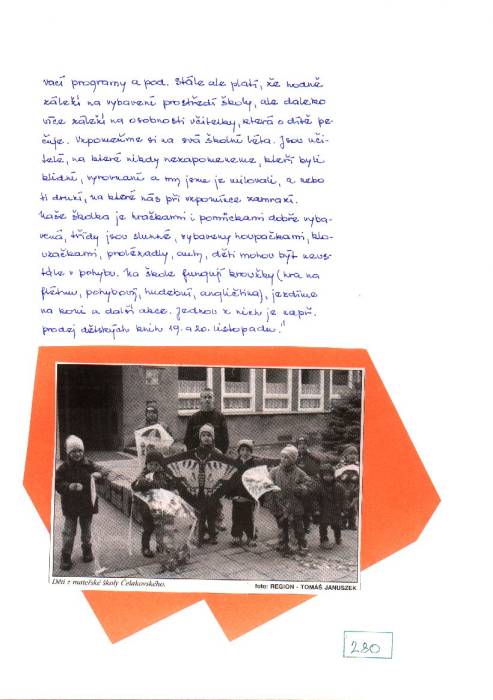 vací programy a pod. Stále ale platí, že hodně
záleží na vybavení prostředí školy, ale daleko
více záleží na osobnosti učitelky, která o dítě pe-
čuje. Vzpomeňme si na svá školní léta. Jsou uči-
telé, na které nikdy nezapomeneme, kteří byli
klidní, vyrovnaní a my jsme je milovali, a nebo
ti druzí, na které nás při vzpomínce zamrazí.
Naše školka je hračkami i pomůckami dobře vyba-
vená, třídy jsou slunné, vybaveny houpačkami, klou-
začkami, prolézačky, auty, děti mohou být neus-
tále v pohybu. Na škole fungují kroužky (hra na
flétnu, pohybový, hudební, angličtina), jezdíme
na koni a další akce. Jednou z nich je např.
prodej dětských knih 19. a 20. listopadu."
Děti z mateřské školy Čelakovského.
foto: REGION - TOMÁŠ JANUSZEK
230